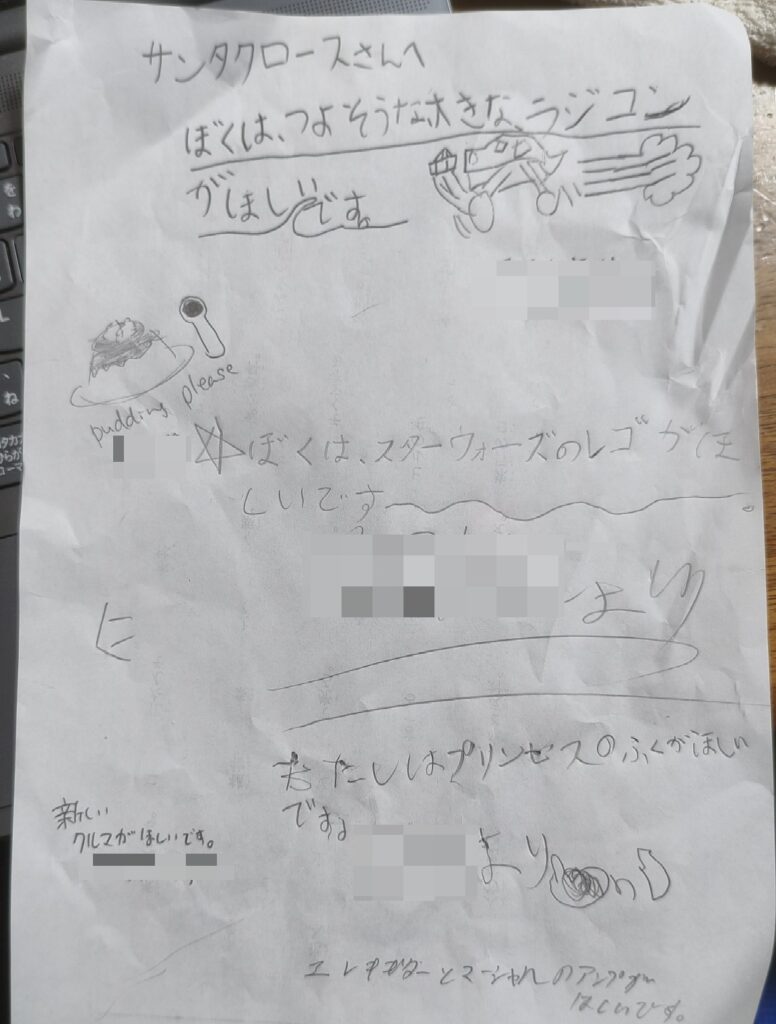 サンタクロースさんへ
ぼくは、つよそうな、大きな、ラジコン
がほしいです。
pudding please
ぼくは、スターウォーズのレゴがほ
しいです
より
わたしはプリンセスのふくがほしい
です。
より
新しい
クルマがほしいです。
エレキギターとマーシャルのアンプが
ほしいです。